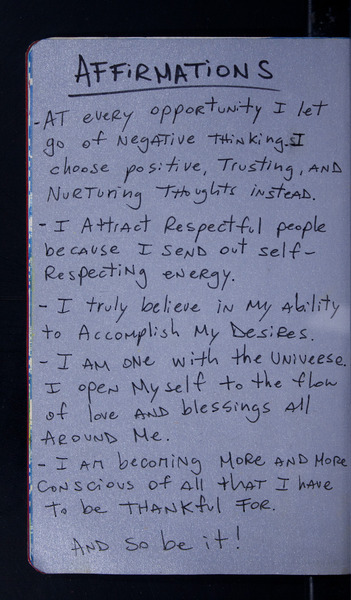 AFFIRMATIONS
- AT every opportunity I let
go of Negative thinking. I
choose positive, Trusting, AND
Nurturing Thoughts instead.
- I Attract Respectful people
because I send out self-
Respecting energy.
- I truly believe in My Ability
to Accomplish My Desires.
- I AM one with the Universe.
I open Myself to the flow
of love AND blessings All
Around Me.
- I AM becoming More AND More
conscious of All that I have
to be THANKful For.
AND so be it!